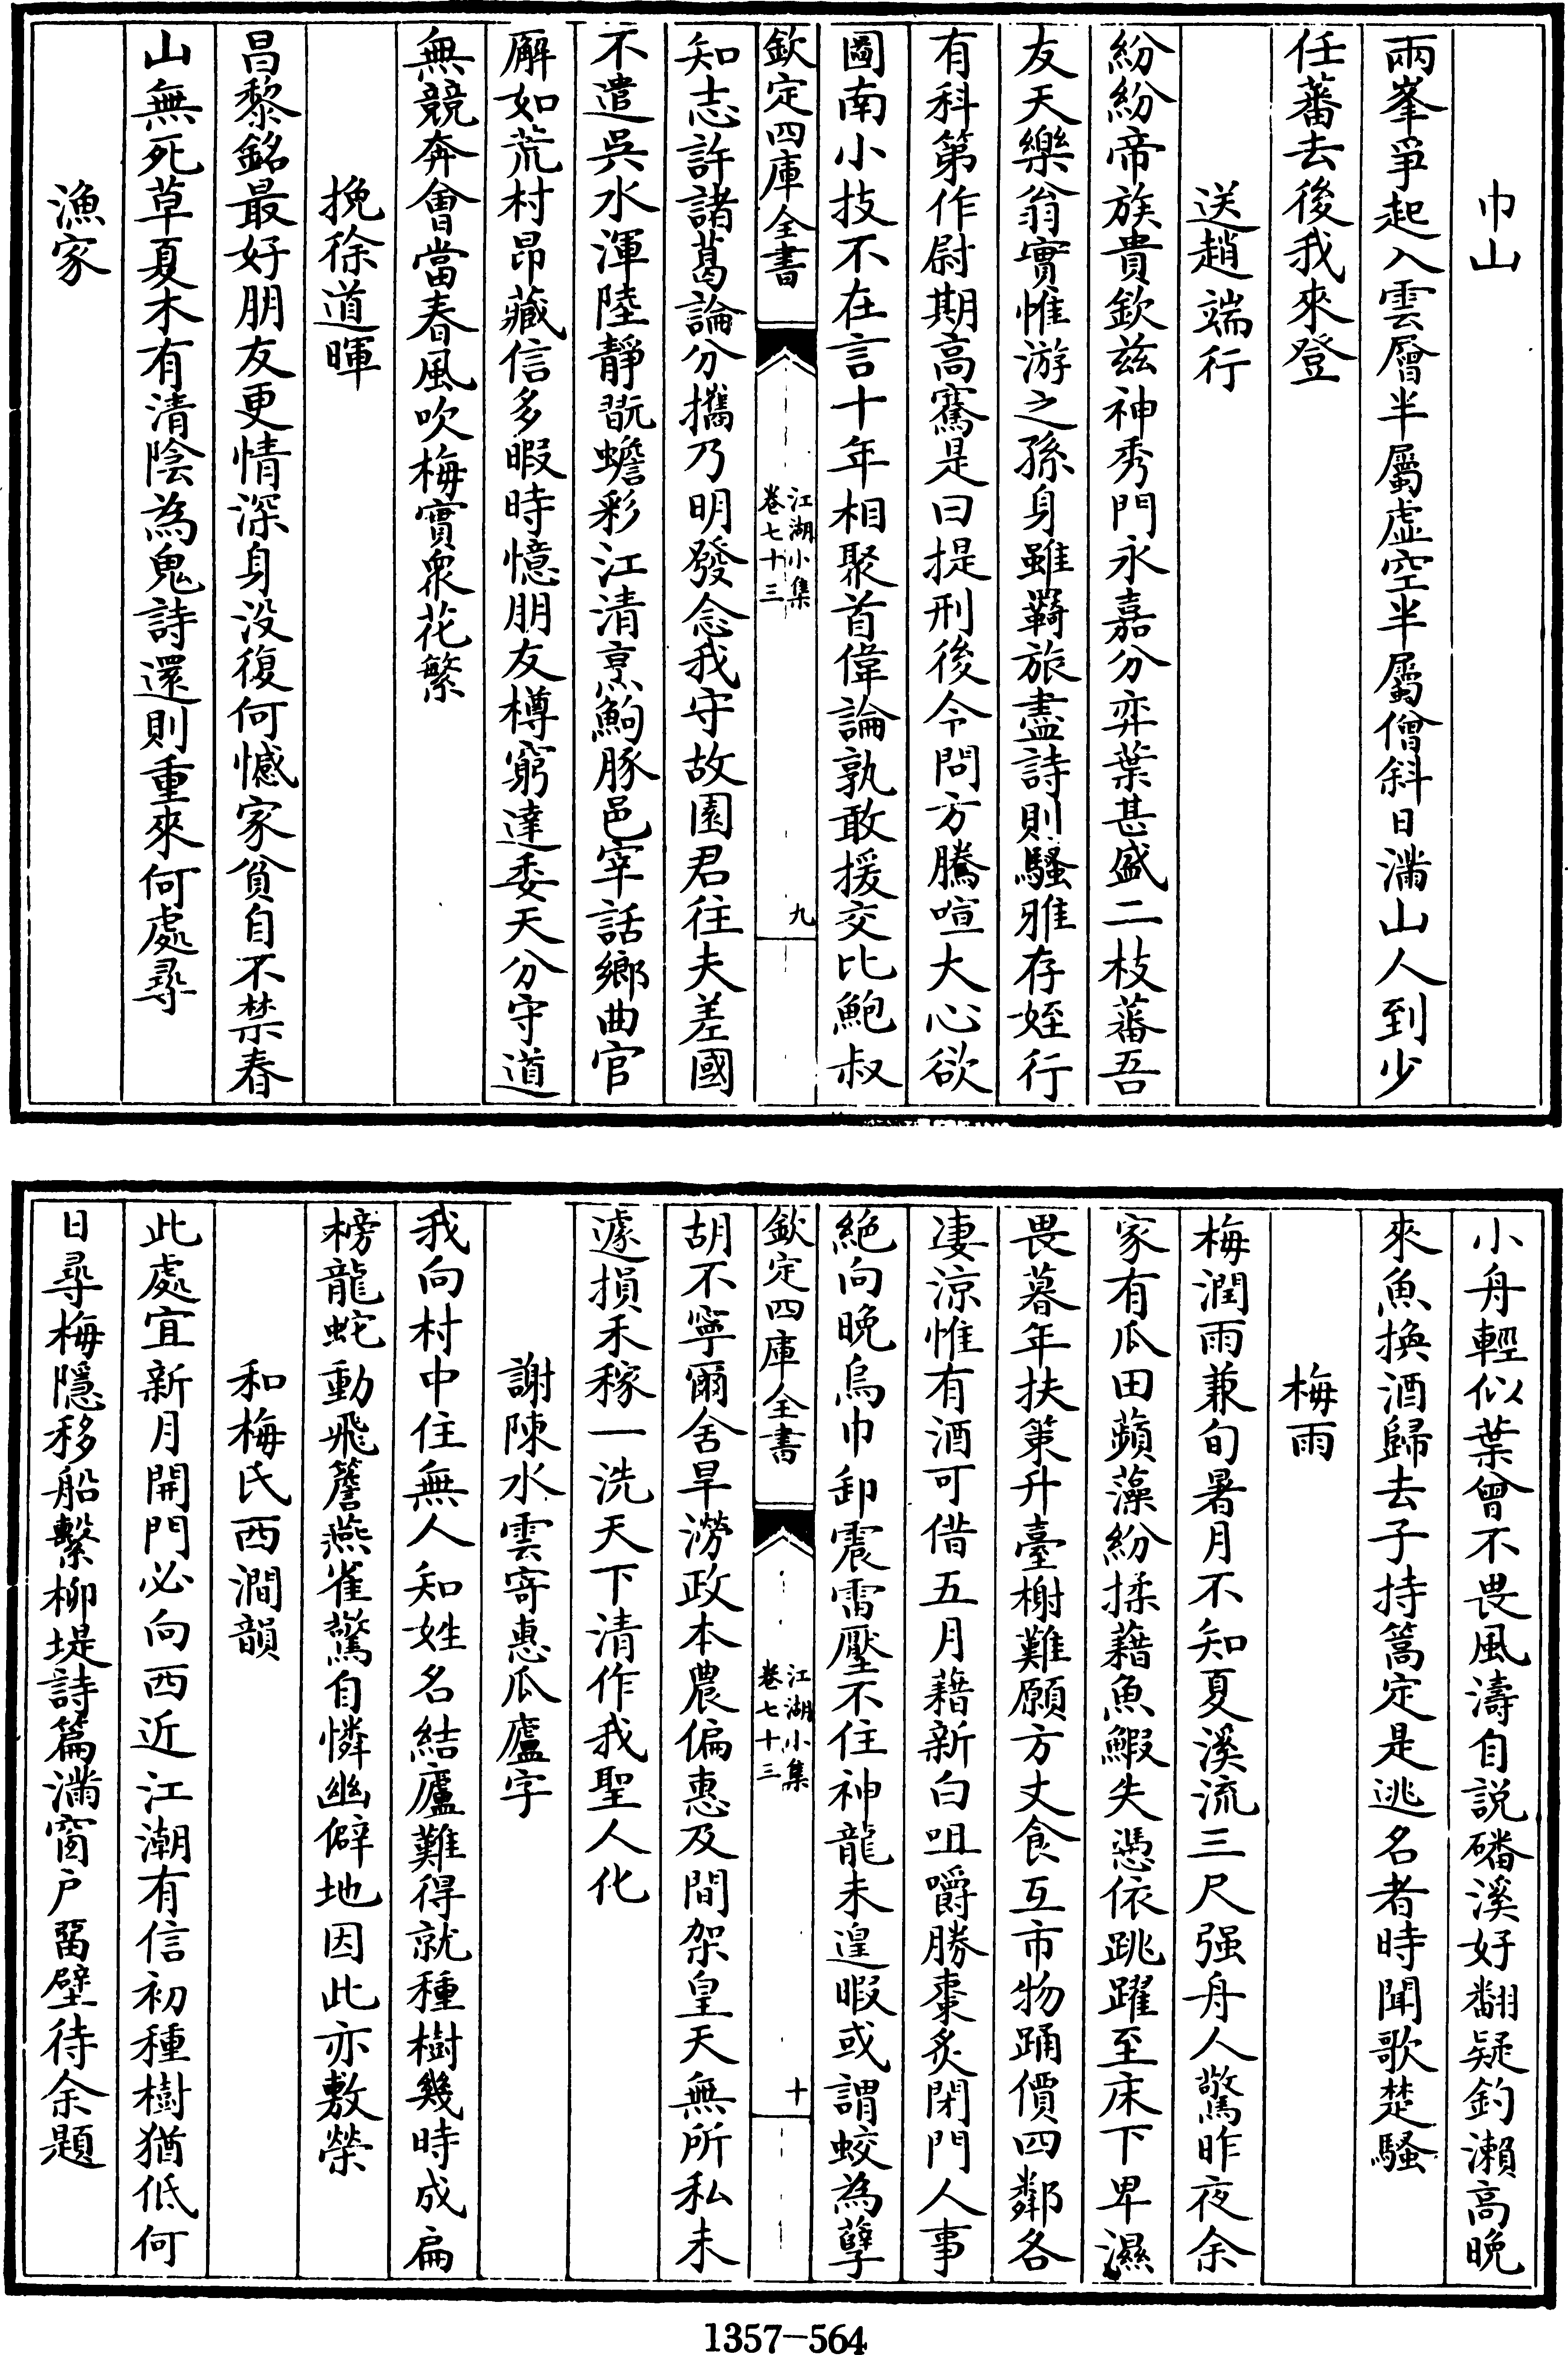 巾山
兩峯爭起入雲層半屬虚空半屬僧斜日滿山人到少
任蕃去後我來登
送趙端行
紛紛帝族貴欽兹神秀門永嘉分弈葉甚盛二枝蕃吾
友天樂翁實惟游之孫身雖羇旅盡詩則騷雅存姪行
有科第作尉期高騫是曰提刑後今問方騰喧大心欲
圖南小技不在言十年相聚首偉論孰敢援交比鮑叔
欽定四庫全書
江湖小集
卷七十三
九
知志許諸葛論分攜乃明發念我守故園君往夫差國
不遣吳水渾陸靜翫蟾彩江清烹鮈豚邑宰話鄉曲官
廨如荒村昂藏信多暇時憶朋友樽窮達委天分守道
無競奔會當春風吹梅實衆花繁
挽徐道暉
昌黎銘最好朋友更情深身没復何憾家貧自不禁春
山無死草夏木有清陰為鬼詩還則重來何處尋
漁家
小舟輕似葉曾不畏風濤自説磻溪好翻疑釣瀨高晚
來魚換酒歸去子持篙定是逃名者時聞歌楚騷
梅雨
梅潤雨兼旬暑月不知夏溪流三尺强舟人驚昨夜余
家有瓜田蘋藻紛揉藉魚鰕失憑依跳躍至床下卑濕
畏暮年扶策升臺榭難願方丈食互市物踊價四鄰各
凄涼惟有酒可借五月藉新白咀嚼勝棗炙閉門人事
絕向晚烏巾卸震雷壓不住神龍未遑暇或謂蛟為孽
欽定四庫全書
江湖小集
卷七十三
十
胡不寧爾舍旱澇政本農偏惠及間架皇天無所私未
遽損禾稼一洗天下清作我聖人化
謝陳水雲寄惠瓜廬字
我向村中住無人知姓名結廬難得就種樹幾時成扁
榜龍蛇動飛簷燕雀驚自憐幽僻地因此亦敷榮
和梅氏西澗韻
此處宜新月開門必向西近江潮有信初種樹猶低何
日尋梅隱移船繫柳堤詩篇滿窗户留壁待余題
1357-564